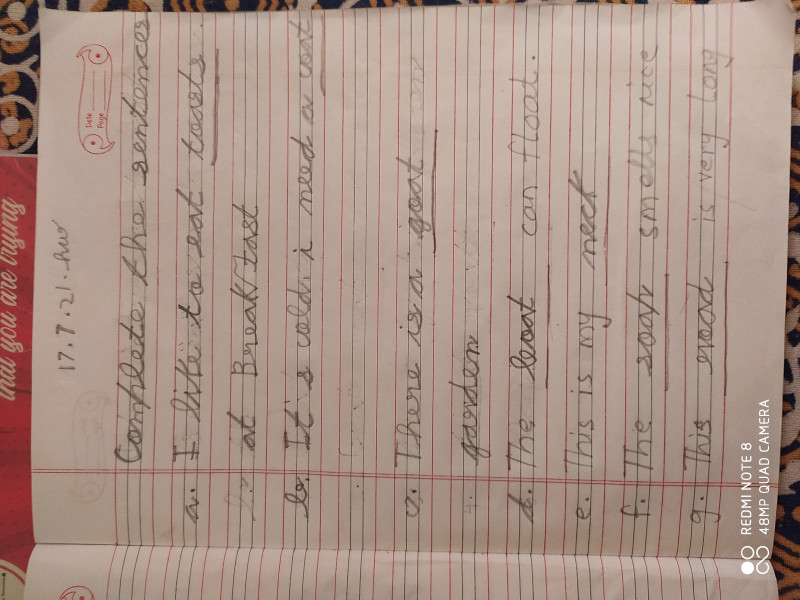 that you are trying
Date
Page
17.7.21.hw
Complete the sentences
a. I like to eat tosets.
at Breakfast
b. It's cold. i need a coat
c. There is a goat
garden
d. The boat can float.
e. This is my neck
f. The soap smells nice
g. This road is very long
REDMI NOTE 8
48MP QUAD CAMERA